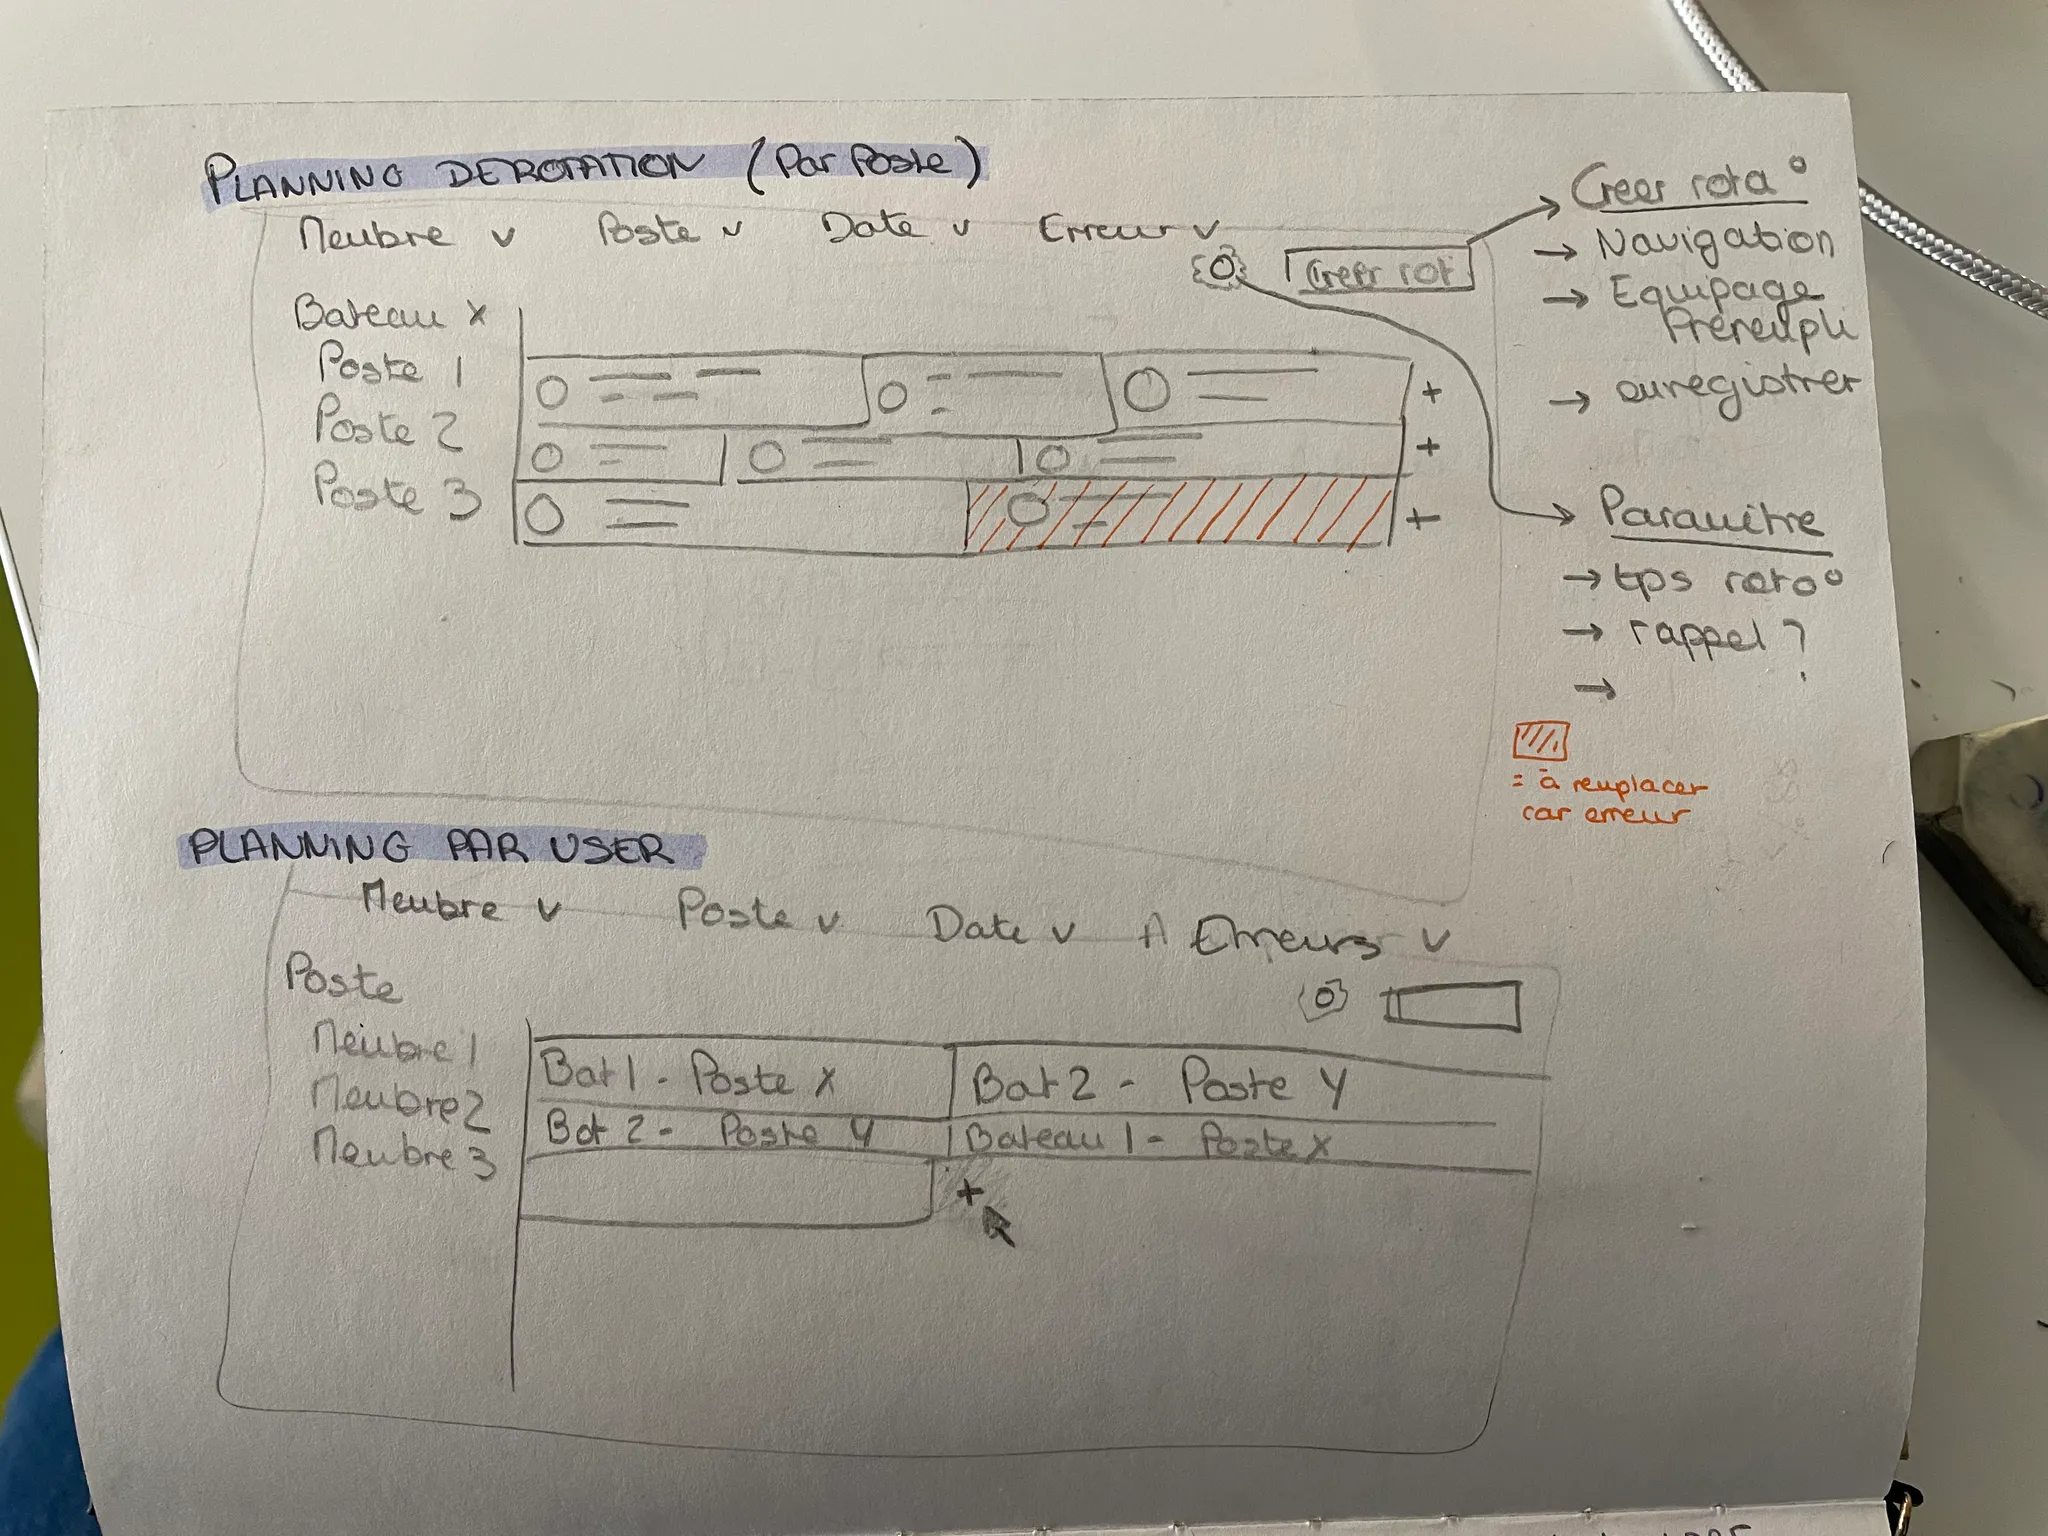 PLANNING DE ROTATION (Par Poste)
Membre v Poste v Date v Erreur v
Créer rot
Bateau x
Poste 1
Poste 2
Poste 3
+
+
+
Créer rota°
→ Navigation
→ Equipage
Prérempli
→ enregistrer
Paramètre
→ tps rota°
→ rappel ?
→
= à remplacer
car erreur
PLANNING PAR USER
Membre v Poste v Date v Erreurs v
Poste
Membre 1
Membre 2
Membre 3
Bat 1 - Poste X Bat 2 - Poste Y
Bat 2 - Poste Y Bateau 1 - Poste X
+